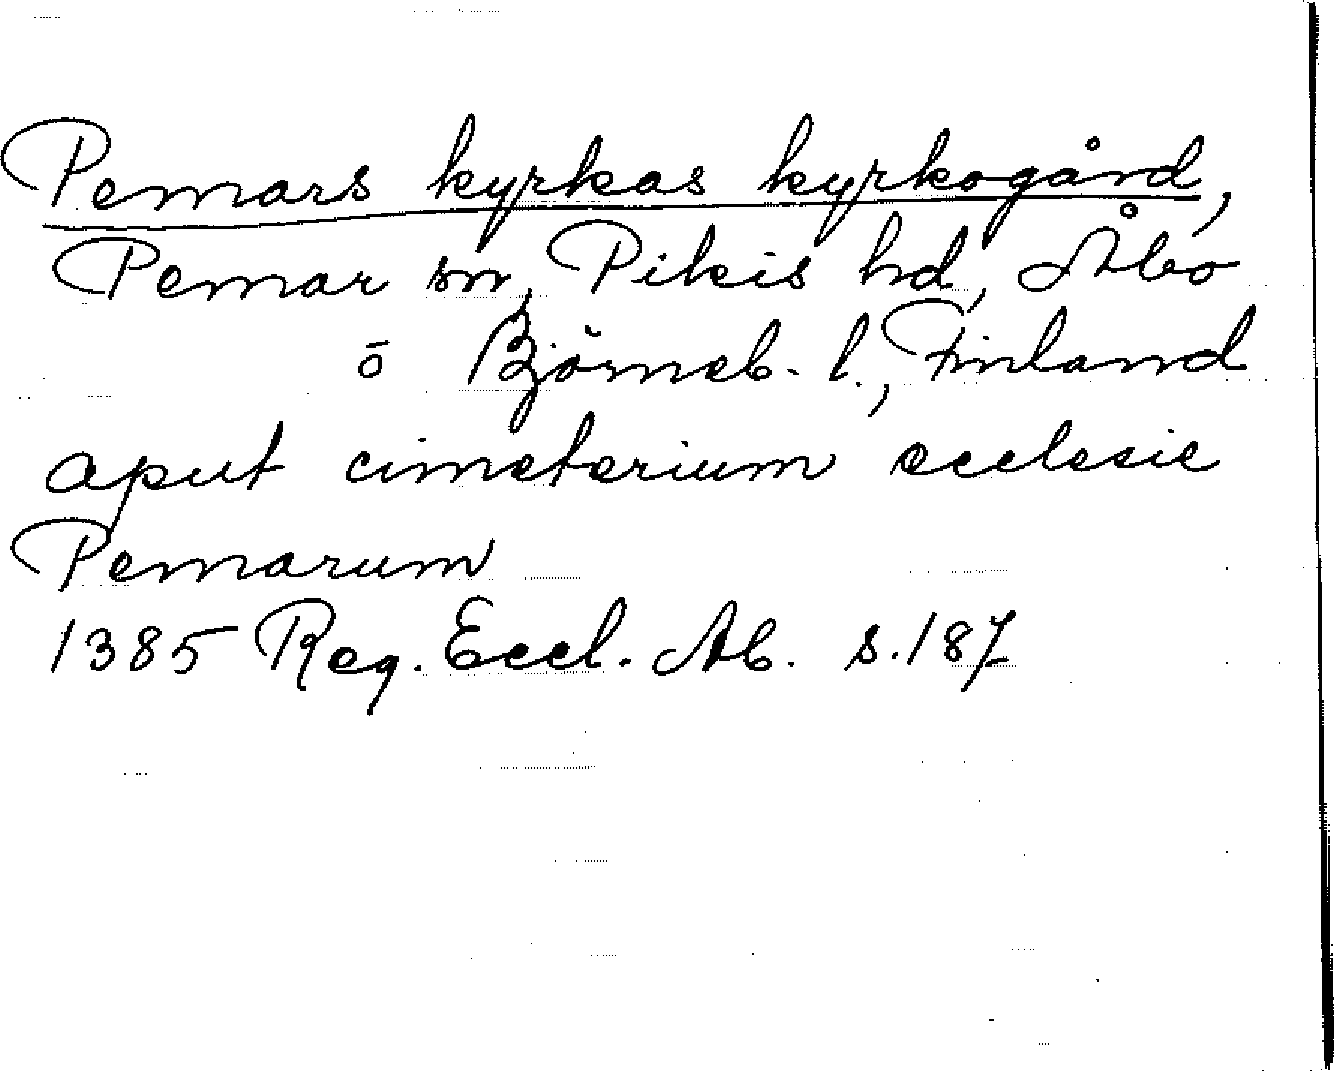 Pemars kyrkas kyrkogård,
Pemar sn, Pikis hd, Åbo
o Björneb. l., Finland
aput cimeterium ecclesie
Pemarum
1385 Reg. Eccl. Ab. s. 187